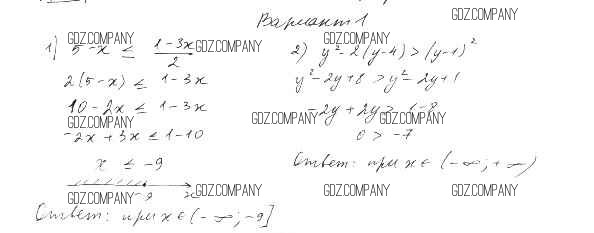 Вариант 1
1) 5 - x ≤ (1 - 3x)/2
2(5 - x) ≤ 1 - 3x
10 - 2x ≤ 1 - 3x
-2x + 3x ≤ 1 - 10
x ≤ -9
-9 x
Ответ: при x ∈ (-∞; -9]
2) y² - 2(y - 4) > (y - 1)²
y² - 2y + 8 > y² - 2y + 1
-2y + 2y > 1 - 8
0 > -7
Ответ: при x ∈ (-∞; +∞)
GDZ.COMPANY
GDZ.COMPANY
GDZ.COMPANY
GDZ.COMPANY
GDZ.COMPANY
GDZ.COMPANY
GDZ.COMPANY
GDZ.COMPANY
GDZ.COMPANY
GDZ.COMPANY
GDZ.COMPANY